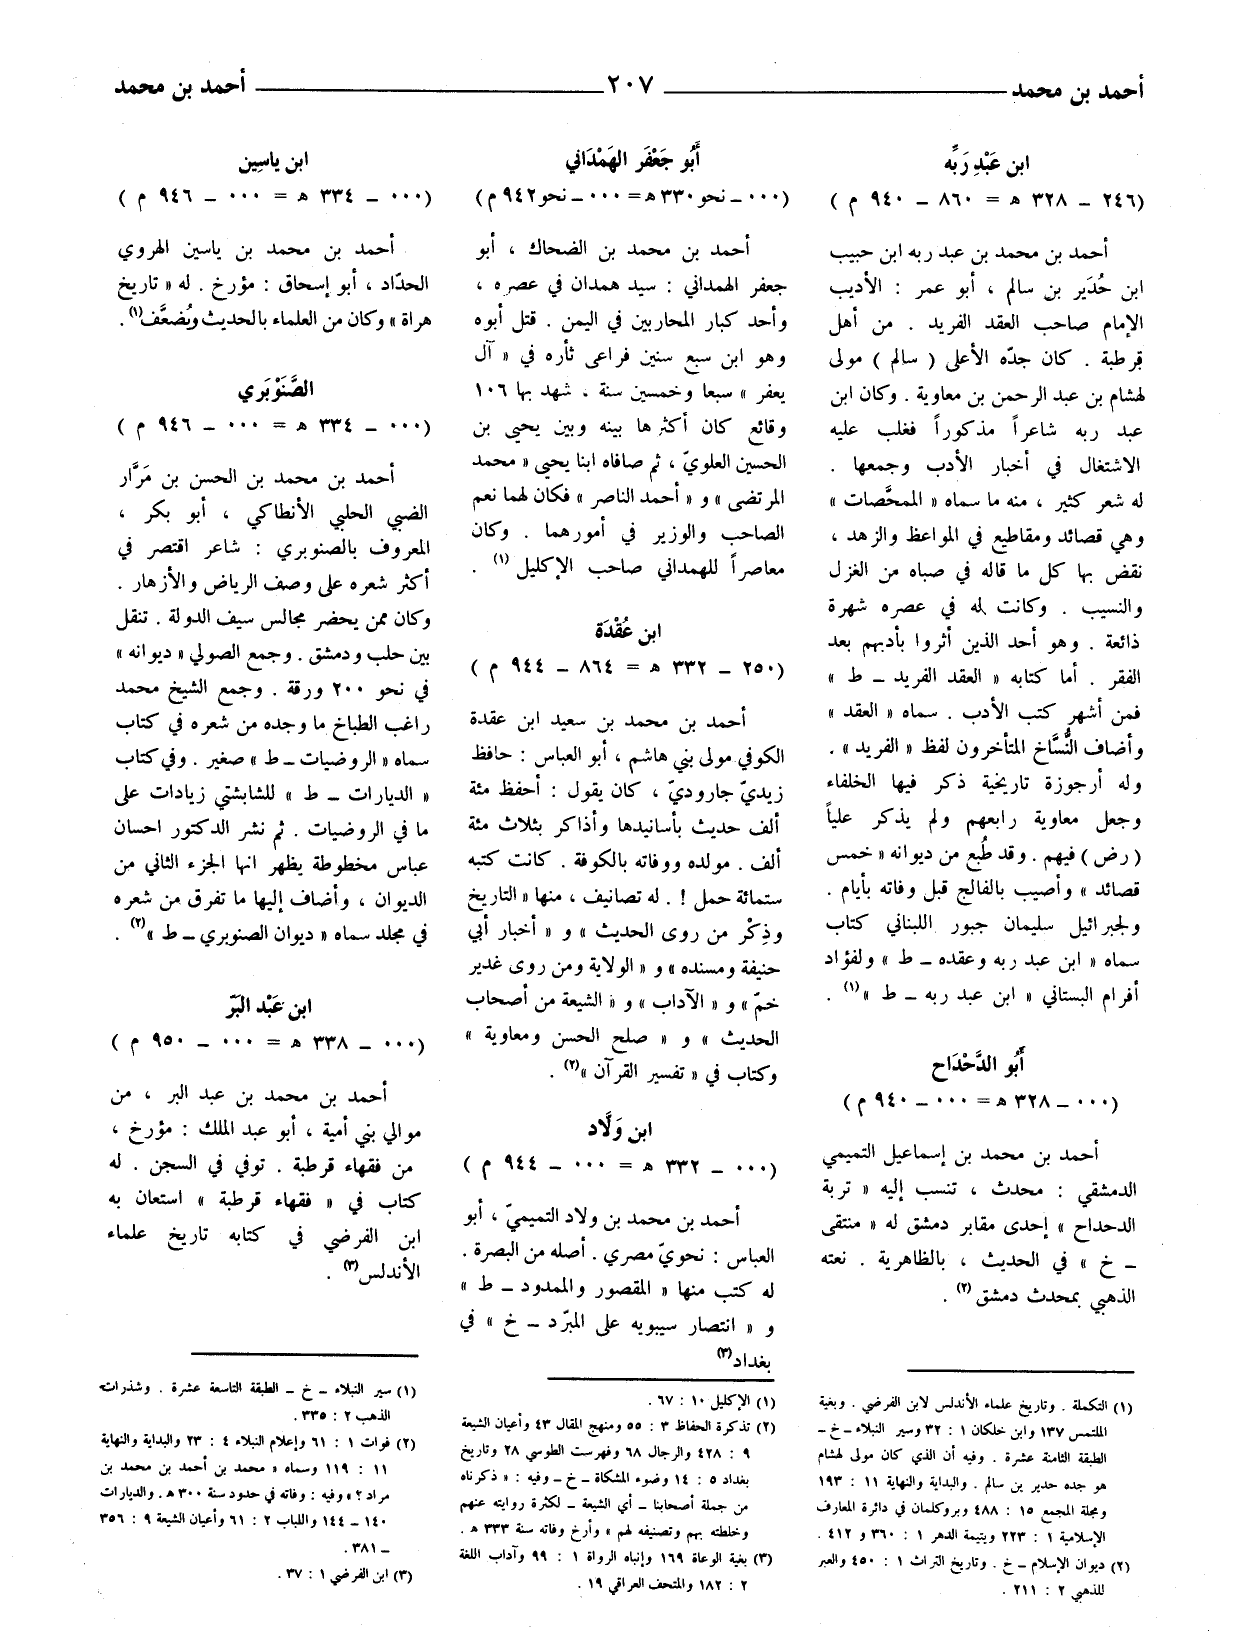 أحمد بن محمد ٢٠٧ أحمد بن محمد
ابن عَبْدِ رَبِّه
(٢٤٦ – ٣٢٨ ه = ٨٦٠ – ٩٤٠ م )
أحمد بن محمد بن عبد ربه ابن حبيب
ابن حُدَير بن سالم ، أبو عمر : الأديب
الإمام صاحب العقد الفريد . من أهل
قرطبة . كان جدّه الأعلى ( سالم ) مولى
لهشام بن عبد الرحمن بن معاوية . وكان ابن
عبد ربه شاعراً مذكوراً فغلب عليه
الاشتغال في أخبار الأدب وجمعها .
له شعر كثير ، منه ما سماه « الممحَّصات »
وهي قصائد ومقاطيع في المواعظ والزهد ،
نقض بها كل ما قاله في صباه من الغزل
والنسيب . وكانت له في عصره شهرة
ذائعة . وهو أحد الذين أثروا بأدبهم بعد
الفقر . أما كتابه « العقد الفريد – ط »
فمن أشهر كتب الأدب . سماه « العقد »
وأضاف النُّسَّاخ المتأخرون لفظ « الفريد » .
وله أرجوزة تاريخية ذكر فيها الخلفاء
وجعل معاوية رابعهم ولم يذكر علياً
( رض ) فيهم . وقد طُبع من ديوانه « خمس
قصائد » وأصيب بالفالج قبل وفاته بأيام .
ولجبرائيل سليمان جبور اللبناني كتاب
سماه « ابن عبد ربه وعقده – ط » ولفؤاد
أفرام البستاني « ابن عبد ربه – ط »(١) .
أَبُو الدَّحْدَاح
(٠٠٠ – ٣٢٨ ه = ٠٠٠ – ٩٤٠ م )
أحمد بن محمد بن إسماعيل التميمي
الدمشقي : محدث ، تنسب إليه « تربة
الدحداح » إحدى مقابر دمشق له « منتقى
– خ » في الحديث ، بالظاهرية . نعته
الذهبي بمحدث دمشق (٢) .
(١) التكملة . وتاريخ علماء الأندلس لابن الفرضي . وبغية
الملتمس ١٣٧ وابن خلكان ١ : ٣٢ وسير النبلاء – خ –
الطبقة الثامنة عشرة . وفيه أن الذي كان مولى لهشام
هو جده حدير بن سالم . والبداية والنهاية ١١ : ١٩٣
ومجلة المجمع ١٥ : ٤٨٨ وبروكلمان في دائرة المعارف
الإسلامية ١ : ٢٢٣ ويتيمة الدهر ١ : ٣٦٠ و ٤١٢ .
(٢) ديوان الإسلام – خ . وتاريخ التراث ١ : ٤٥٠ والعبر
للذهبي ٢ : ٢١١ .
أَبُو جَعْفَر الهَمْدَاني
(٠٠٠ – نحو ٣٣٠ ه = ٠٠٠ – نحو ٩٤٢ م )
أحمد بن محمد بن الضحاك ، أبو
جعفر الهمداني : سيد همدان في عصره ،
وأحد كبار المحاربين في اليمن . قتل أبوه
وهو ابن سبع سنين فراعى ثأره في « آل
يعفر » سبعا وخمسين سنة ، شهد بها ١٠٦
وقائع كان أكثرها بينه وبين يحيى بن
الحسين العلويّ ، ثم صافاه ابنا يحيى « محمد
المرتضى » و « أحمد الناصر » فكان لهما نعم
الصاحب والوزير في أمورهما . وكان
معاصراً للهمداني صاحب الإكليل (١) .
ابن عُقْدَة
(٢٥٠ – ٣٣٢ ه = ٨٦٤ – ٩٤٤ م )
أحمد بن محمد بن سعيد ابن عقدة
الكوفي مولى بني هاشم ، أبو العباس : حافظ
زيديّ جاروديّ ، كان يقول : أحفظ مئة
ألف حديث بأسانيدها وأذاكر بثلاث مئة
ألف . مولده ووفاته بالكوفة . كانت كتبه
ستمائة حمل ! . له تصانيف ، منها « التاريخ
وذِكْر من روى الحديث » و « أخبار أبي
حنيفة ومسنده » و « الولاية ومن روى غدير
خمّ » و « الآداب » و « الشيعة من أصحاب
الحديث » و « صلح الحسن ومعاوية »
وكتاب في « تفسير القرآن »(٢) .
ابن وَلَّاد
(٠٠٠ – ٣٣٢ ه = ٠٠٠ – ٩٤٤ م )
أحمد بن محمد بن ولاد التميميّ ، أبو
العباس : نحويّ مصري . أصله من البصرة .
له كتب منها « المقصور والممدود – ط »
و « انتصار سيبويه على المبرّد – خ » في
بغداد(٣)
(١) الإكليل ١٠ : ٦٧ .
(٢) تذكرة الحفاظ ٣ : ٥٥ ومنهج المقال ٤٣ وأعيان الشيعة
٩ : ٤٢٨ والرجال ٦٨ وفهرست الطوسي ٢٨ وتاريخ
بغداد ٥ : ١٤ وضوء المشكاة – خ – وفيه : « ذكرناه
من جملة أصحابنا – أي الشيعة – لكثرة روايته عنهم
وخلطته بهم وتصنيفه لهم » وأرخ وفاته سنة ٣٣٣ ه .
(٣) بغية الوعاة ١٦٩ وإنباه الرواة ١ : ٩٩ وآداب اللغة
٢ : ١٨٢ والمتحف العراقي ١٩ .
ابن ياسِين
(٠٠٠ – ٣٣٤ ه = ٠٠٠ – ٩٤٦ م )
أحمد بن محمد بن ياسين الهروي
الحدّاد ، أبو إسحاق : مؤرخ . له « تاريخ
هراة » وكان من العلماء بالحديث ويُضعَّف(١) .
الصَّنَوْبَري
(٠٠٠ – ٣٣٤ ه = ٠٠٠ – ٩٤٦ م )
أحمد بن محمد بن الحسن بن مَرَّار
الضبي الحلبي الأنطاكي ، أبو بكر ،
المعروف بالصنوبري : شاعر اقتصر في
أكثر شعره على وصف الرياض والأزهار .
وكان ممن يحضر مجالس سيف الدولة . تنقل
بين حلب ودمشق . وجمع الصولي « ديوانه »
في نحو ٢٠٠ ورقة . وجمع الشيخ محمد
راغب الطباخ ما وجده من شعره في كتاب
سماه « الروضيات – ط » صغير . وفي كتاب
« الديارات – ط » للشابشتي زيادات على
ما في الروضيات . ثم نشر الدكتور احسان
عباس مخطوطة يظهر انها الجزء الثاني من
الديوان ، وأضاف إليها ما تفرق من شعره
في مجلد سماه « ديوان الصنوبري – ط »(٢) .
ابن عَبْد البَرّ
(٠٠٠ – ٣٣٨ ه = ٠٠٠ – ٩٥٠ م )
أحمد بن محمد بن عبد البر ، من
موالي بني أمية ، أبو عبد الملك : مؤرخ ،
من فقهاء قرطبة . توفي في السجن . له
كتاب في « فقهاء قرطبة » استعان به
ابن الفرضي في كتابه تاريخ علماء
الأندلس(٣) .
(١) سير النبلاء – خ – الطبقة التاسعة عشرة . وشذرات
الذهب ٢ : ٣٣٥ .
(٢) فوات ١ : ٦١ وإعلام النبلاء ٤ : ٢٣ والبداية والنهاية
١١ : ١١٩ وسماه « محمد بن أحمد بن محمد بن
مراد ؟ » وفيه : وفاته في حدود سنة ٣٠٠ ه . والديارات
١٤٠ – ١٤٤ واللباب ٢ : ٦١ وأعيان الشيعة ٩ : ٣٥٦
– ٣٨١ .
(٣) ابن الفرضي ١ : ٣٧ .